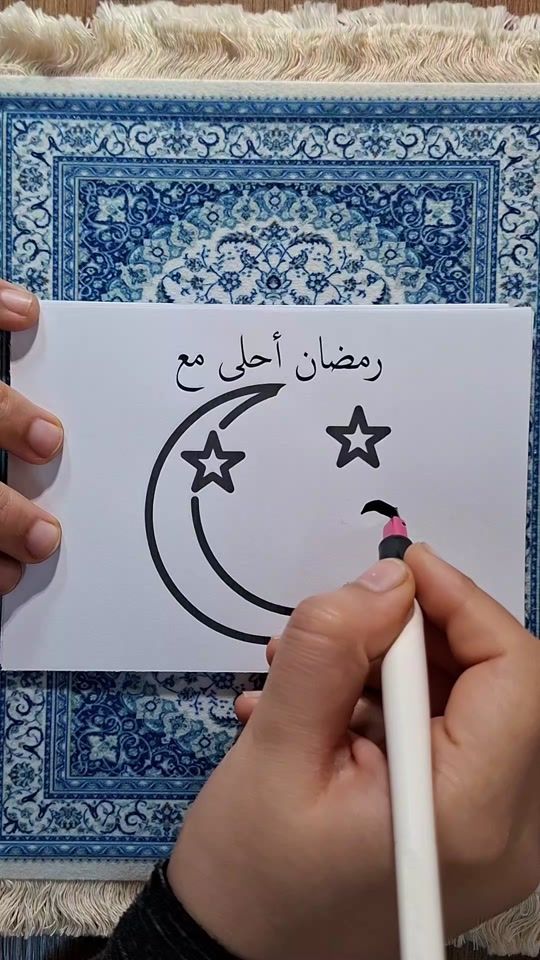 رمضان أحلى مع